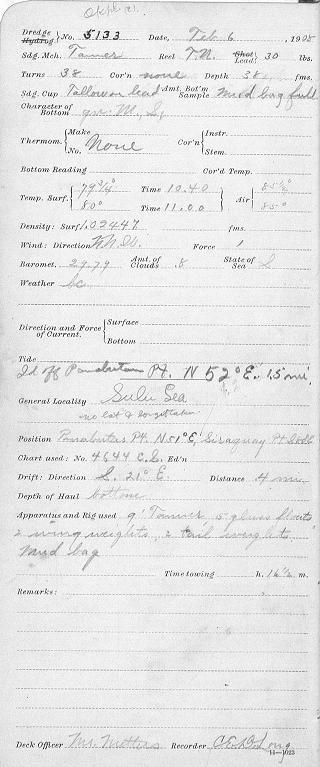 Dredge Hydrog No. 5133 Date, Feb. 6, 1908
Sdg. Mch. Tanner Reel T.M. Shot Lead 30 lbs.
Turns 38 Cor'n none Depth 38 fms.
Sdg. Cup Tallow on lead Amt. Bot'm Sample Mud bag full
Character of Bottom gn. M., S.
Thermom. Make No. None Cor'n Instr. Stem.
Bottom Reading Cor'd Temp.
Temp. Surf. 79 3/4° Time 10.40 Air 85 1/2°
80° Time 11.00 85°
Density: Surf. 1.02447 fms.
Wind: Direction Force 1
Baromet. 29.79 Amt. of Clouds 8 State of Sea S
Weather bc
Direction and Force of Current. Surface
Bottom
Tide
Id off Panabutan Pt. N 52° E. 1.5 mi.
General Locality Sulu Sea
no lat & long taken
Position Panabutan Pt. N 51° E, Siraguay Pt
Chart used: No. 4644 C.S. Ed'n
Drift: Direction S. 21° E. Distance .4 mi.
Depth of Haul bottom
Apparatus and Rig used 9' Tanner, 5 glass floats
2 wing weights, 2 tail weights
Mud bag
Time towing h. 16 1/2 m.
Remarks:
Deck Officer Mr. Recorder
14—1023